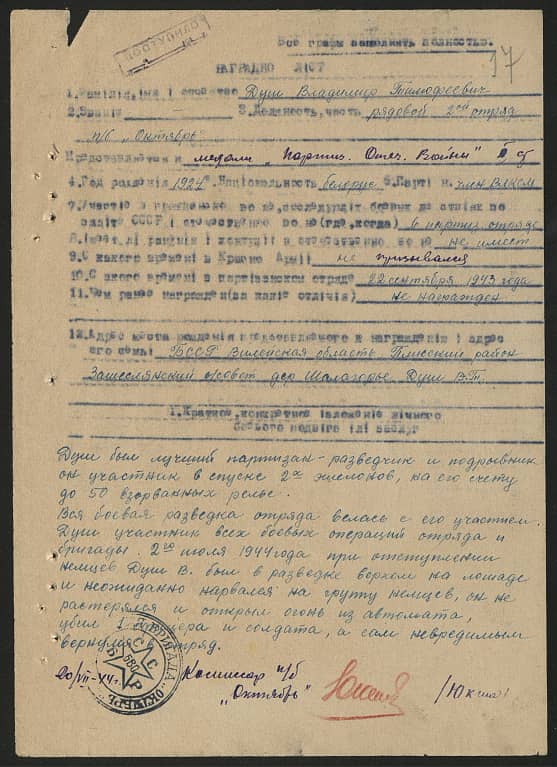 17
Все графы заполнить полностью.
НАГРАДНО ЛИСТ
1. Фамилия, имя i отчество Душ Владимир Тимофеевич
2. Званiи 3. Должность, часть рядовой 2ой отряд
п/б „Октябрь"
Представляется к медали „Партиз. Отеч. Войны" II ст
4. Год рождения 1924г. Национальность белорус 6. Парт член ВЛКСМ
в партиз отряде
не имеет
9. С какого времени в Красно Арм не призывался
10. С какого времени в партизанском отряде 22 сентября 1943 года
11. Чем ранее награжден(за какие отличия) не награжден
12. Адрес места рождения представляемого к награждению i адрес
его семьи БССР Виленская область Плисский район
с/совет дер Шалагорье Душ В.Т.
1. Краткое, конкретное изложение личного
боевого подвига iли заслуг
Душ был лучший партизан-разведчик и подрывник
он участник в спуске 2х эшелонов, на его счету
до 50 взорванных рельс.
Вся боевая разведка отряда велась с его участием.
Душ участник всех боевых операций отряда и
бригады. 2го июля 1944 года при отступлении
немцев Душ В. был в разведке верхом на лошаде
и неожиданно нарвался на группу немцев, он не
растерялся и открыл огонь из автомата,
убил 1 офицера и солдата, а сам невредимым
вернулся в отряд.
20/VII-44г. Комиссар п/б
„Октябрь"